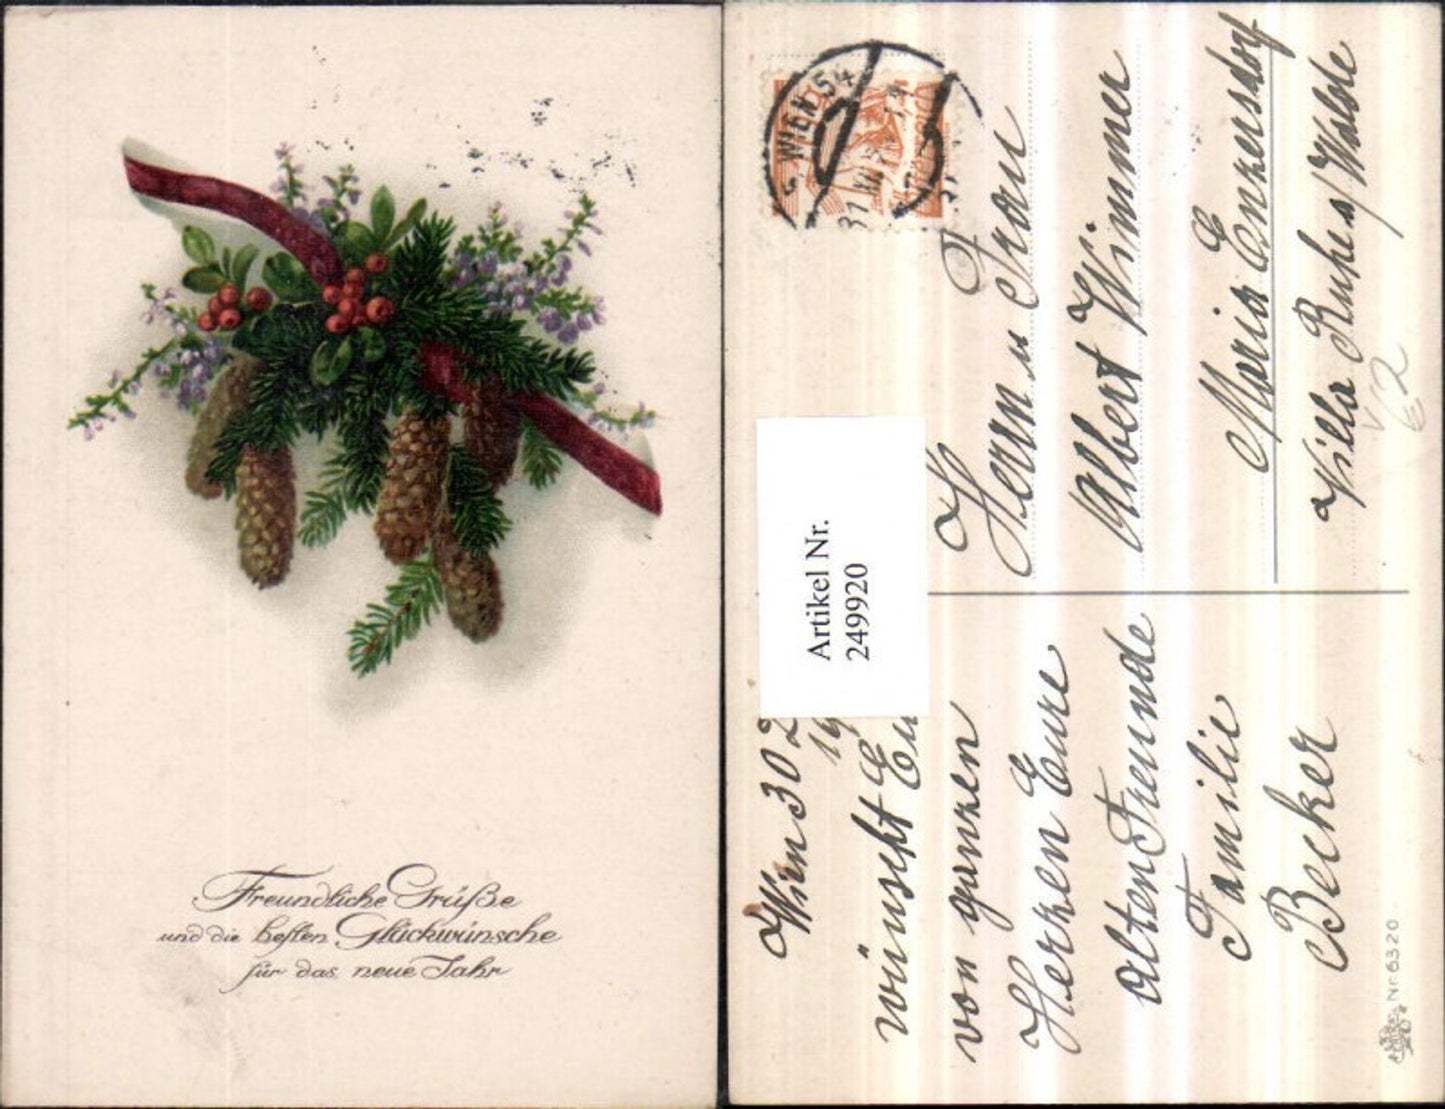 Freundliche Grüße
und die besten Glückwünsche
für das neue Jahr
WIEN 54
Artikel Nr.
249920
Herrn u Frau
Albert Wimmer
Maria Enzersdorf
Villa Ruhe a/Walde
Wien 30
wünscht Eu
von ganzen
Herzen Eure
alten Freunde
Familie
Becker
Nr. 6320